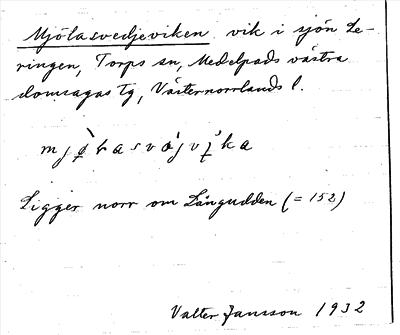 Mjölasvedjeviken vik i sjön Le-
ringen, Torps sn, Medelpads västra
domsagas tg, Västernorrlands l.
Ligger norr om Långudden (= 152)
Valter Jansson 1932